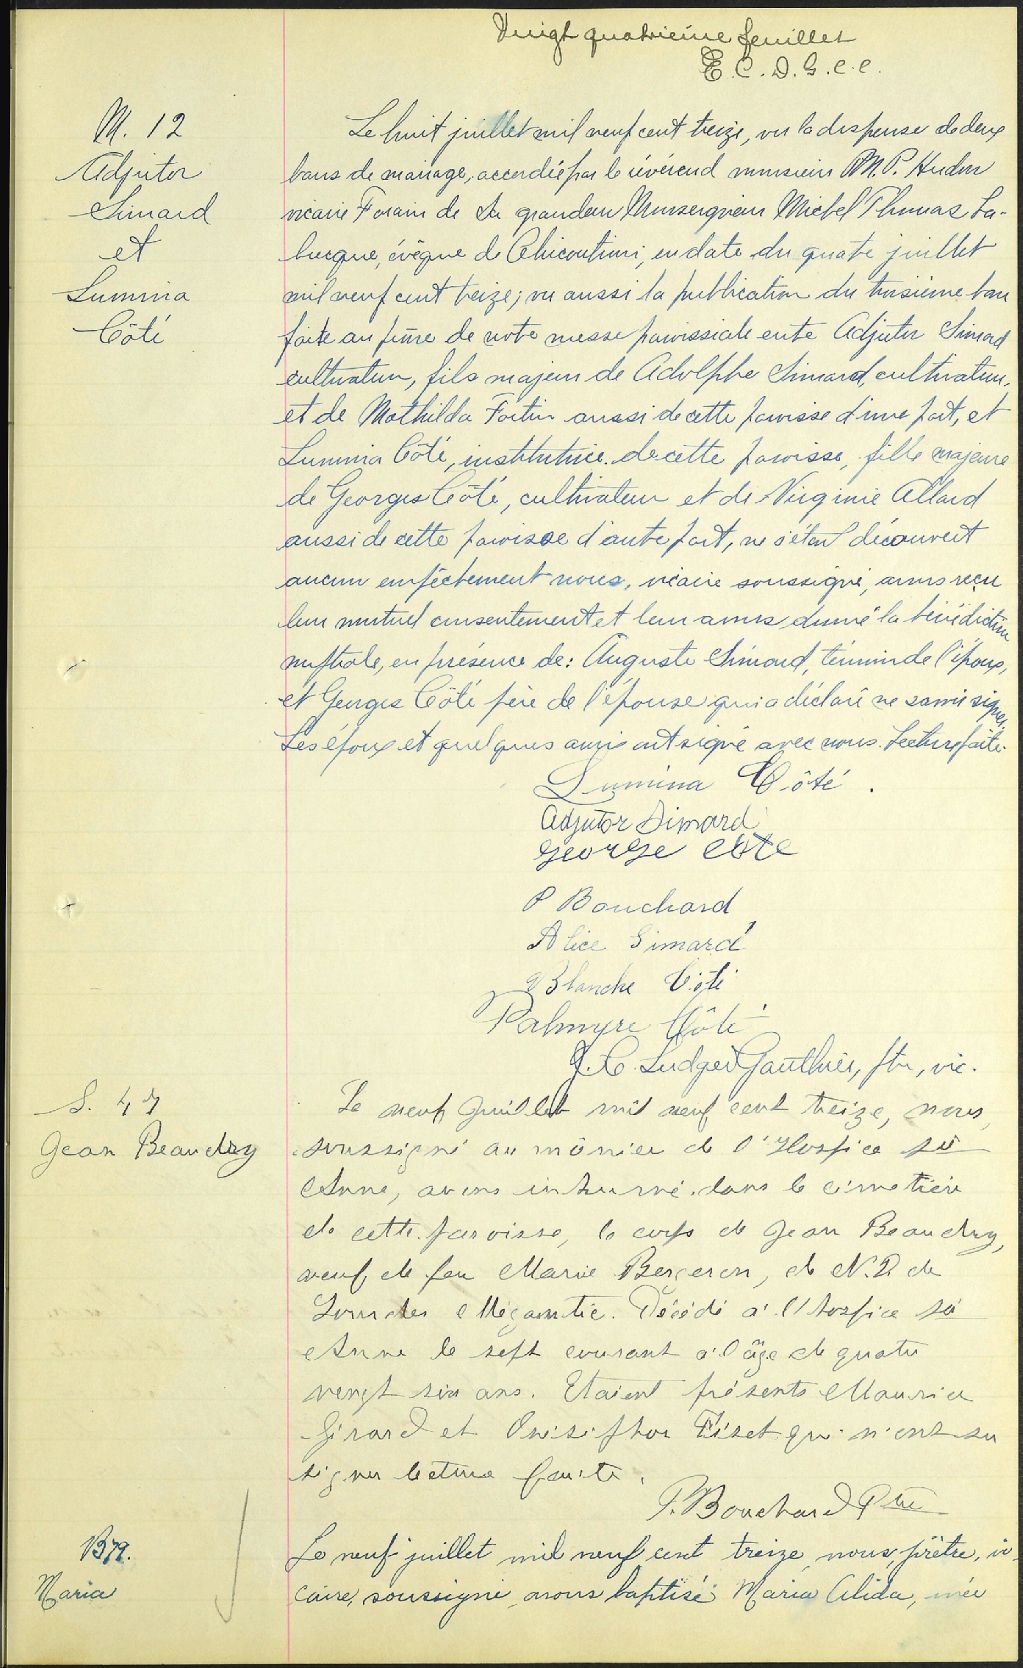 Vingt quatrième feuillet
E. C. D. G. C. C.
M. 12
Adjutor
Simard
et
Lumina
Côté
Le huit juillet mil neuf cent treize, vu la dispense de deux
bans de mariage, accordée par le révérend monsieur P. Hudon
vicaire Forain de Sa grandeur Monseigneur Michel Thomas La-
brecque, évêque de Chicoutimi, en date du quatre juillet
mil neuf cent treize; vu aussi la publication du troisième ban
faite au prône de notre messe paroissiale entre Adjutor Simard
cultivateur, fils majeur de Adolphe Simard, cultivateur,
et de Mathilda Fortin aussi de cette paroisse d'une part, et
Lumina Côté, institutrice de cette paroisse, fille majeure
de Georges Côté, cultivateur et de Virginie Allard
aussi de cette paroisse d'autre part, ne s'étant découvert
aucun empêchement nous, vicaire soussigné, avons reçu
leur mutuel consentement et leur avons donné la bénédiction
nuptiale, en présence de: Auguste Simard, témoin de l'époux,
et Georges Côté père de l'épouse qui a déclaré ne savoir signer.
Les époux et quelques amis ont signé avec nous. Lecture faite.
Lumina Côté.
Adjutor Simard
George Côté
P Bouchard
Alice Simard
Blanche Côté
Palmyre Côté
J. C. Ludger Gauthier, ptre, vic.
S. 47
Jean Beaudry
Le neuf Juillet mil neuf cent treize, nous,
soussigné aumônier de l'Hospice Ste
Anne, avons inhumé dans le cimetière
de cette paroisse, le corps de Jean Beaudry,
veuf de feu Marie Bergeron, de N. D. de
Lourdes Mégantic. Décédé à l'Hospice Ste
Anne le sept courant à l'âge de quatre
vingt six ans. Etaient présents Maurice
Girard et Onésiphor Fiset qui n'ont su
signer lecture faite.
P. Bouchard Ptre
B79.
Maria
Le neuf juillet mil neuf cent treize, nous, prêtre, vi-
caire, soussigné, avons baptisé Maria Alida, née